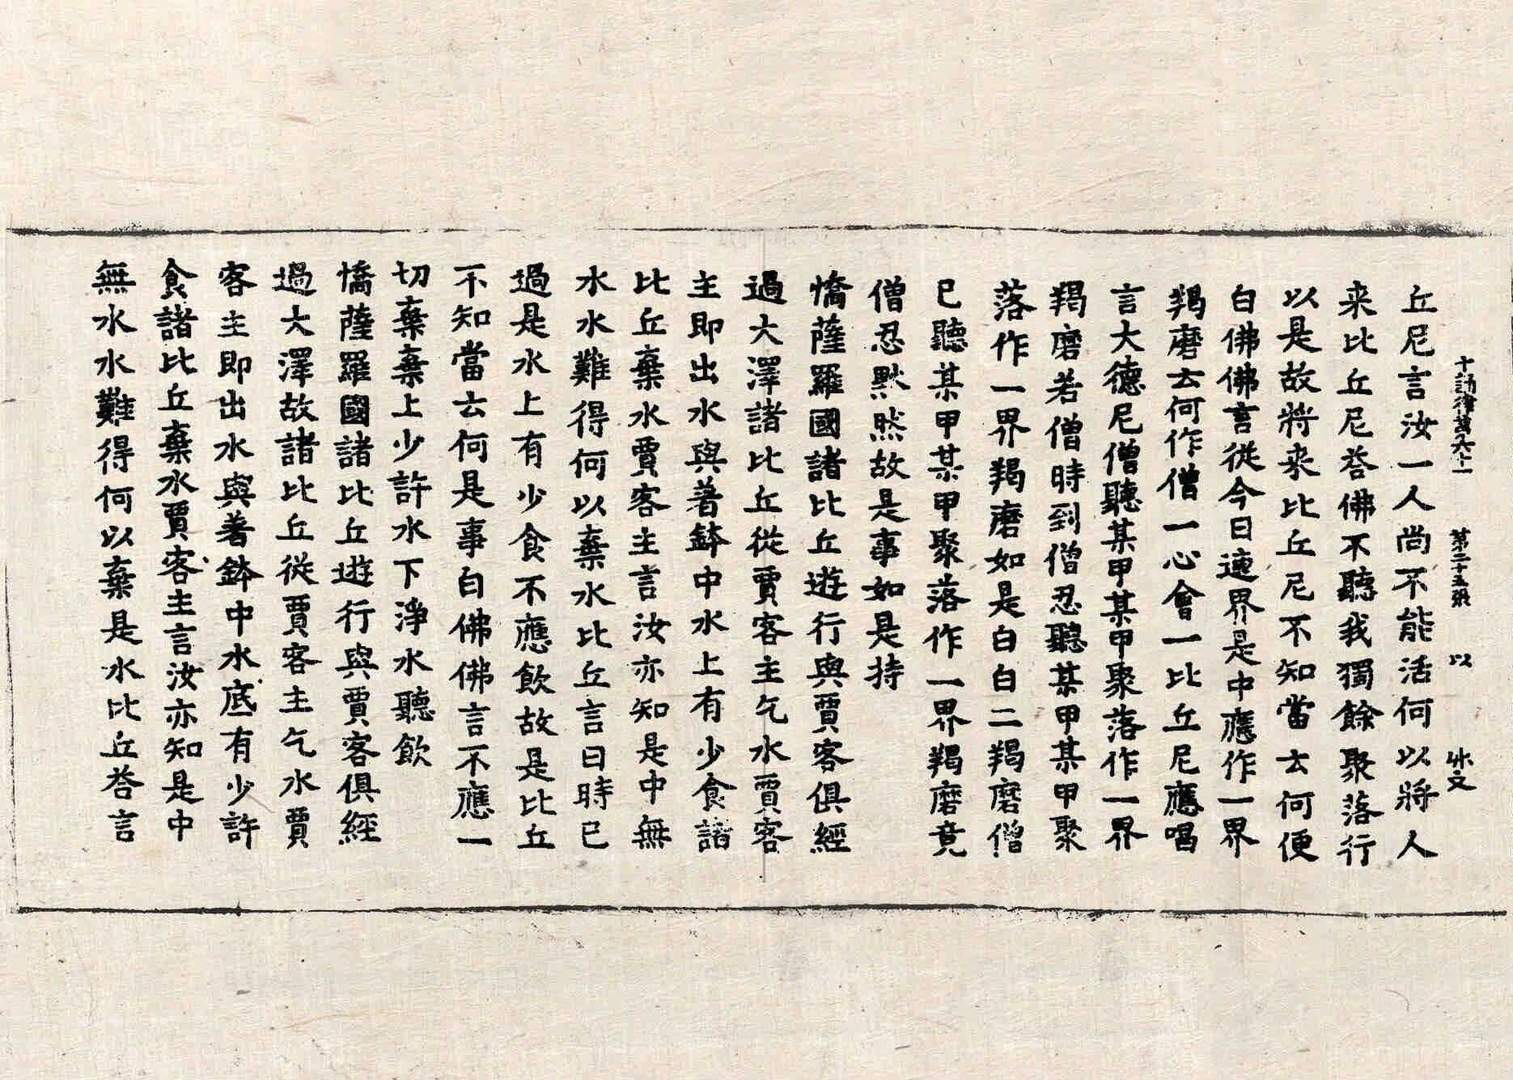 十誦律第六十一　第二十五張　以
丘尼言汝一人尚不能活何以將人
来比丘尼荅佛不聽我獨餘聚落行
以是故將来比丘尼不知當云何便
白佛佛言從今日適界是中應作一界
羯磨云何作僧一心會一比丘尼應唱
言大德尼僧聽某甲某甲聚落作一界
羯磨若僧時到僧忍聽某甲某甲聚
落作一界羯磨如是白白二羯磨僧
已聽某甲某甲聚落作一界羯磨竟
僧忍黙然故是事如是持
憍薩羅國諸比丘遊行與賈客俱經
過大澤諸比丘從賈客主乞水賈客
主即出水與著鉢中水上有少食諸
比丘棄水賈客主言汝亦知是中無
水水難得何以棄水比丘言日時已
過是水上有少食不應飲故是比丘
不知當云何是事白佛佛言不應一
切棄棄上少許水下淨水聽飲
憍薩羅國諸比丘遊行與賈客俱經
過大澤故諸比丘從賈客主乞水賈
客主即出水與著鉢中水底有少許
食諸比丘棄水賈客主言汝亦知是中
無水水難得何以棄是水比丘荅言